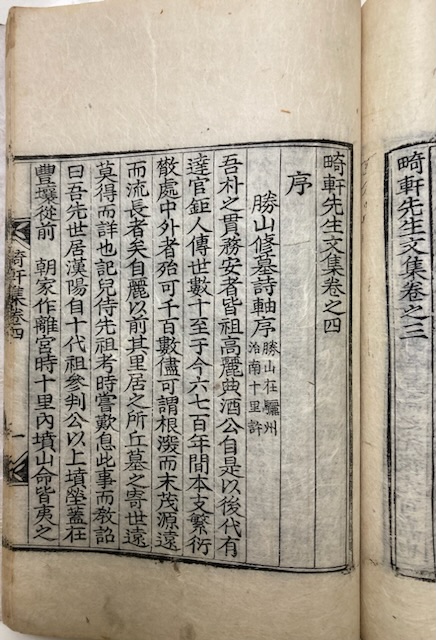 畸軒先生文集卷之三
畸軒先生文集卷之四
序
勝山修墓詩軸序 勝山在驪州
治南十里許
吾朴之貫務安者皆祖高麗典酒公自是以後代有
達官鉅人傳世數十至于今六七百年間本支繁衍
散處中外者殆可千百數儘可謂根深而末茂源遠
而流長者矣自麗以前其里居之所丘墓之寄世遠
莫得而詳也記兒侍先祖考時嘗歎息此事而教詔
曰吾先世居漢陽自十代祖參判公以上墳塋蓋在
豊壤從前 朝家作離宮時十里內墳山命皆夷之
畸軒集卷四 一